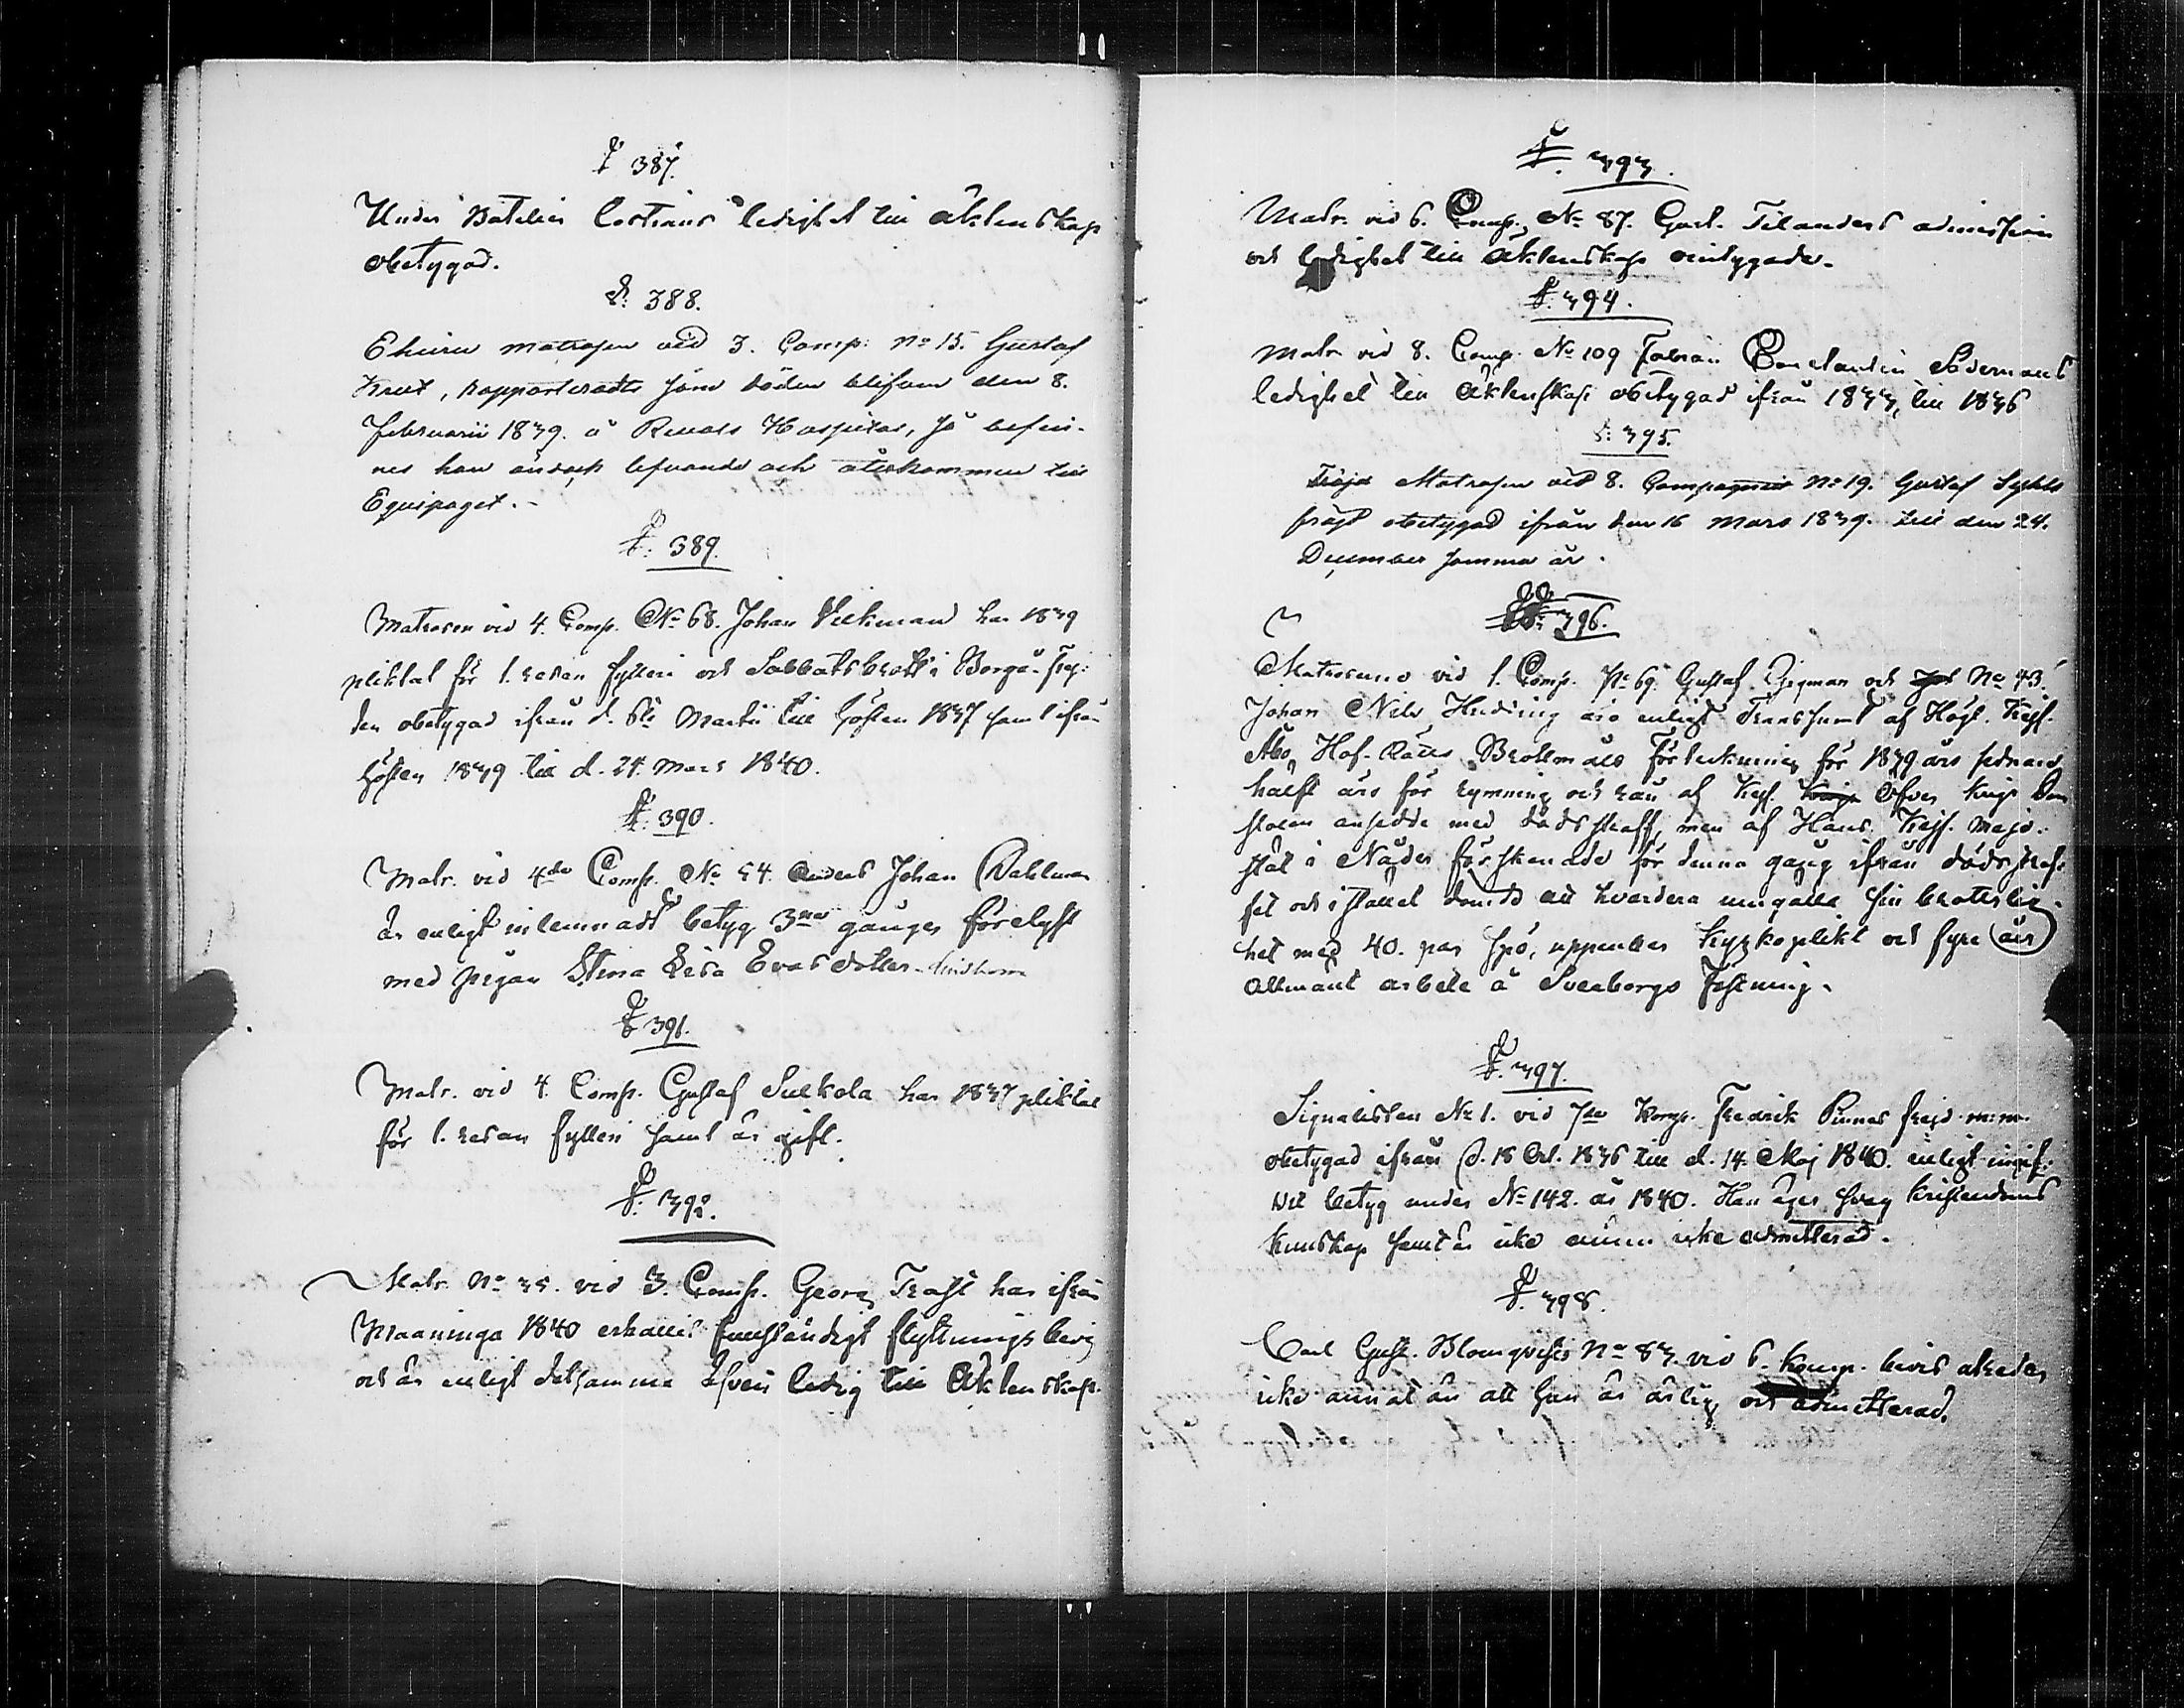 § 387.
Under Batelier ledighet till äktenskap
obetygad.
§. 388.
Ehuru matrosen vid 3. Comp: No 15. Gustaf
Krut, rapporterats såsom döden blifven den 8.
Februarii 1839. å Revals Hospital, så befin-
nes han ändock lefvande och återkommen till
Equipaget.-
§. 389.
Matrosen vid 4. Comp. No 68. Johan Vickman har 1839
pliktat för 1. resan fylleri och Sabbatsbrott i Borgå. frej-
den obetygad ifrån d. 6te Martii till hösten 1837 samt ifrån
hösten 1839 till d. 24. Mars 1840.
§. 390.
Matr. vid 4de Comp. No 54. Anders Johan Dahlman
är enligt inlemnadt betyg 3ne gånger förelyst
med pigan Stina Lisa Evasdotter Lindholm
§ 391.
Matr. vid 4. Comp. Gustaf Sulkola har 1837 pliktat
för 1. resan fylleri samt är gift.
§. 392.
Matr. No 35. vid 3. Comp. Georg Trast har ifrån
Maaninga 1840 erhållit fullständigt flyttnings bevis
och är enligt detsamma äfven ledig till Äktenskap.
§. 393.
Matr. vid 6. Comp., No 87. Gust. Tilanders admission
och ledighet till äktenskap ointygade.
§. 394.
Matr vid 8. Comp. No 109 Fabian Constantin Södermans
ledighet till Äktenskap obetygad ifrån 1833, till 1836
§: 395.
Matrosen vid 8. Compagnie No 19. Gustaf
fräjd obetygad ifrån den 16 Mars 1839. till den 24.
December samma år.
§. 396.
Matroserne vid 1. Comp. No 69. Gustaf Zigman och No 43.
Johan Nils Hudding äro enligt Transsumt af Högl. Kejs.
Åbo Hof-Rätts Brottmåls Förteckning för 1839 års sednare
hälft års för rymning och rån af Kejs. Krigs Öfver Krigs Dom
stolen ansedde med dödsstraff, men af Hans Kejs. Majs-
stät i Nåder förskonade för denna gång ifrån dödsstraf-
fet och i stället dömde att hvardera umgälla sin brottslig-
het med 40. par spö, uppenbar Kyrkoplikt och fyra års
allmänt arbete å Sveaborgs Fästning.
§. 397.
Signalisten No 1. vid 7de Komp. Fredrik Pinnas frejd m:m.
obetygad ifrån d. 18 Oct. 1836 till d. 14. Maj 1840. enligt ingif-
vit betyg under No 142. år 1840. Han äger svag kristendoms
kunskap samt är icke ännu icke admitterad.
§. 398.
Carl Gust. Blomqvists No 83. vid 6. Komp. bevis utreder
icke annat än att han är ärlig och admitterad.